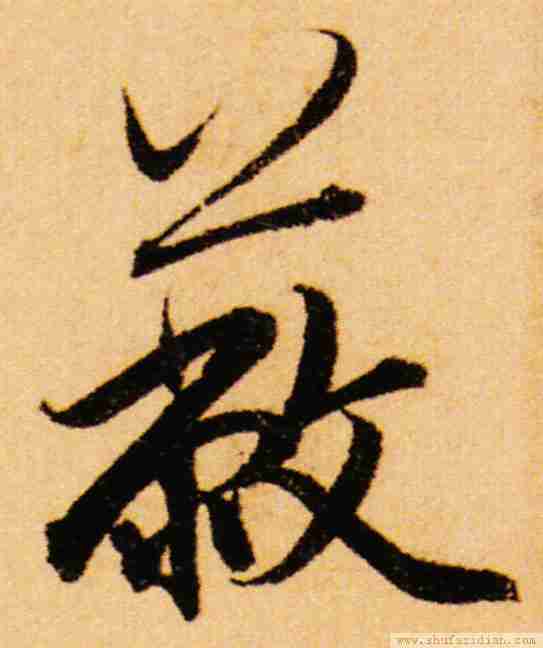 蔽
www.shufazidian.com